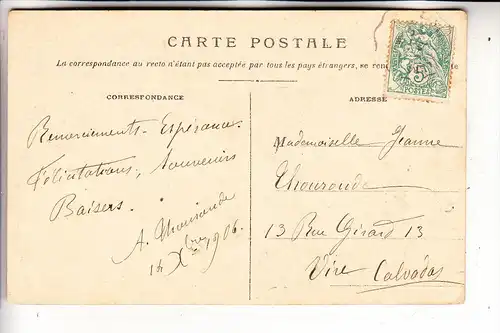 CARTE POSTALE
La correspondance au recto n'étant pas acceptée par tous les pays étrangers, se
CORRESPONDANCE
ADRESSE
5
POSTES
Remerciements - Espérance.
Félicitations, Souvenirs
Baisers.
A.
14 Xbre 1906.
Mademoiselle Jeanne
13 Rue Girard 13
Vire Calvados